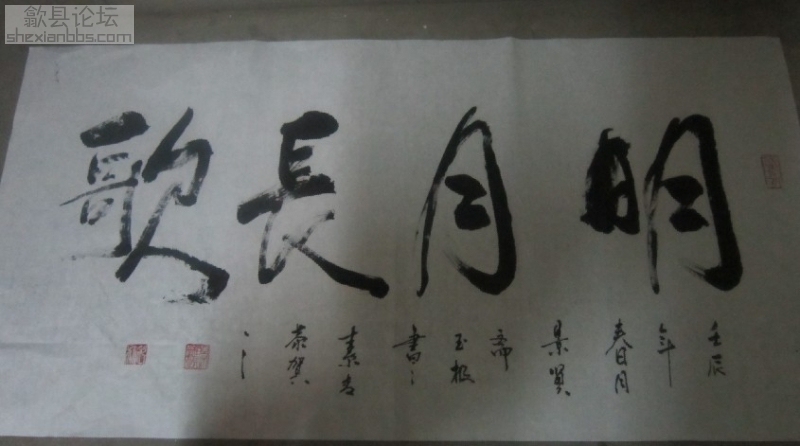 歙县论坛
shexianbbs.com
明月長歌
壬辰
年
春日月
景賢
斋
玉振
書
素吉
恭賀